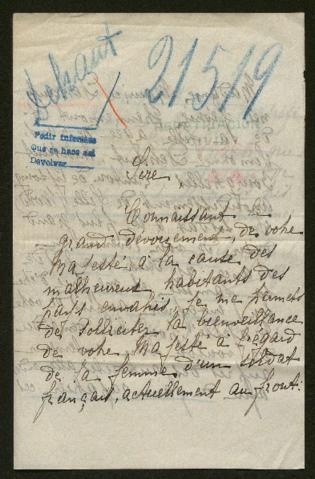 Dehaut
21519
Pedir informes
Que se hace así
Devolver
Sire
Connaissant le
grand dévouement, de votre
Majesté à la cause des
malheureux habitants des
pays envahis, je me permets
de solliciter la bienveillance
de votre Majesté à l'égard
de la femme d'un soldat
français, actuellement au front: